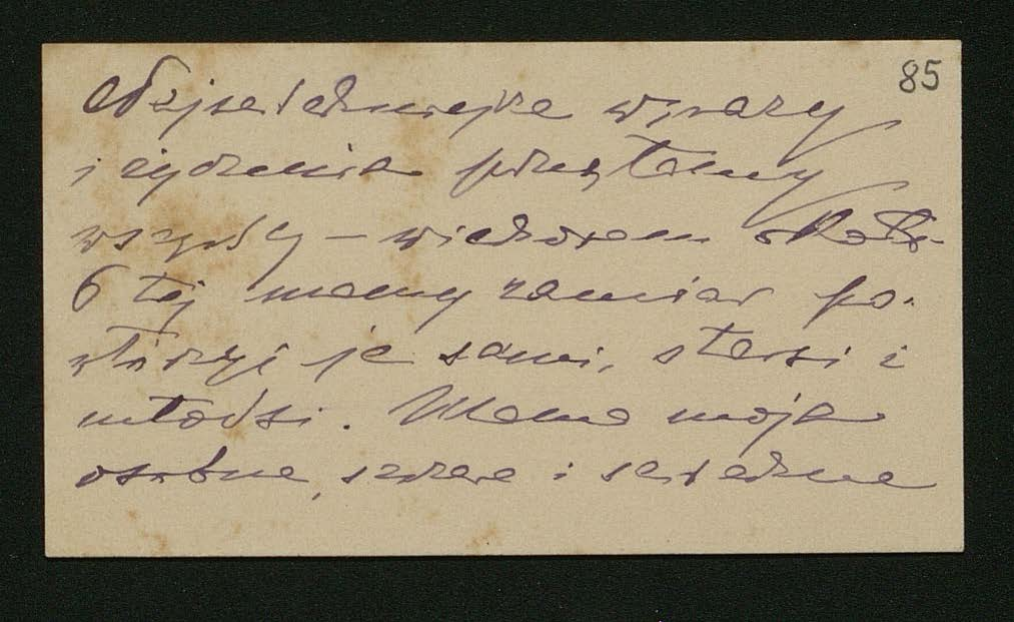 85
Najserdeczniejsze wyrazy
i życzenia przesyłamy
wszyscy – wieczorem około
6 tej mamy zamiar po-
wtórzyć je sami, starsi i
młodsi. Mama moja
osobne, szczere i serdeczne